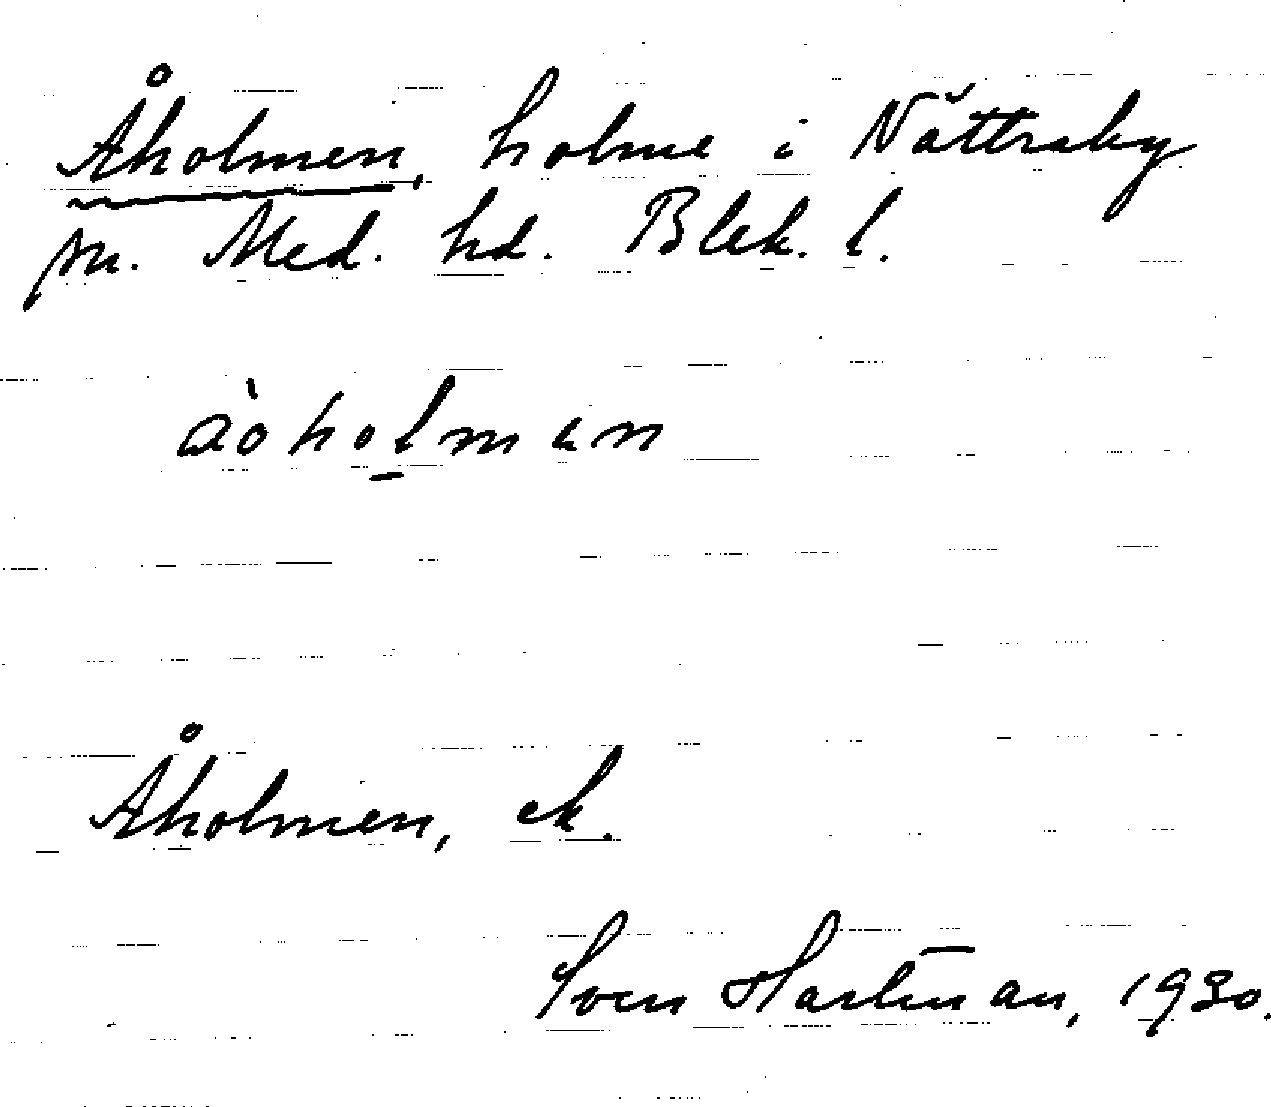 Åholmen, holme i Nättraby
sn. Med. hd. Blek. l.
àoholmen
Åholmen, ek.
Sven Hartman, 1930.